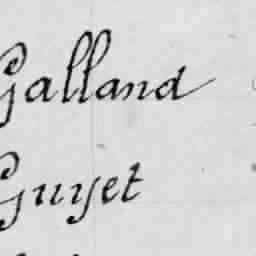 Galland
Guyet